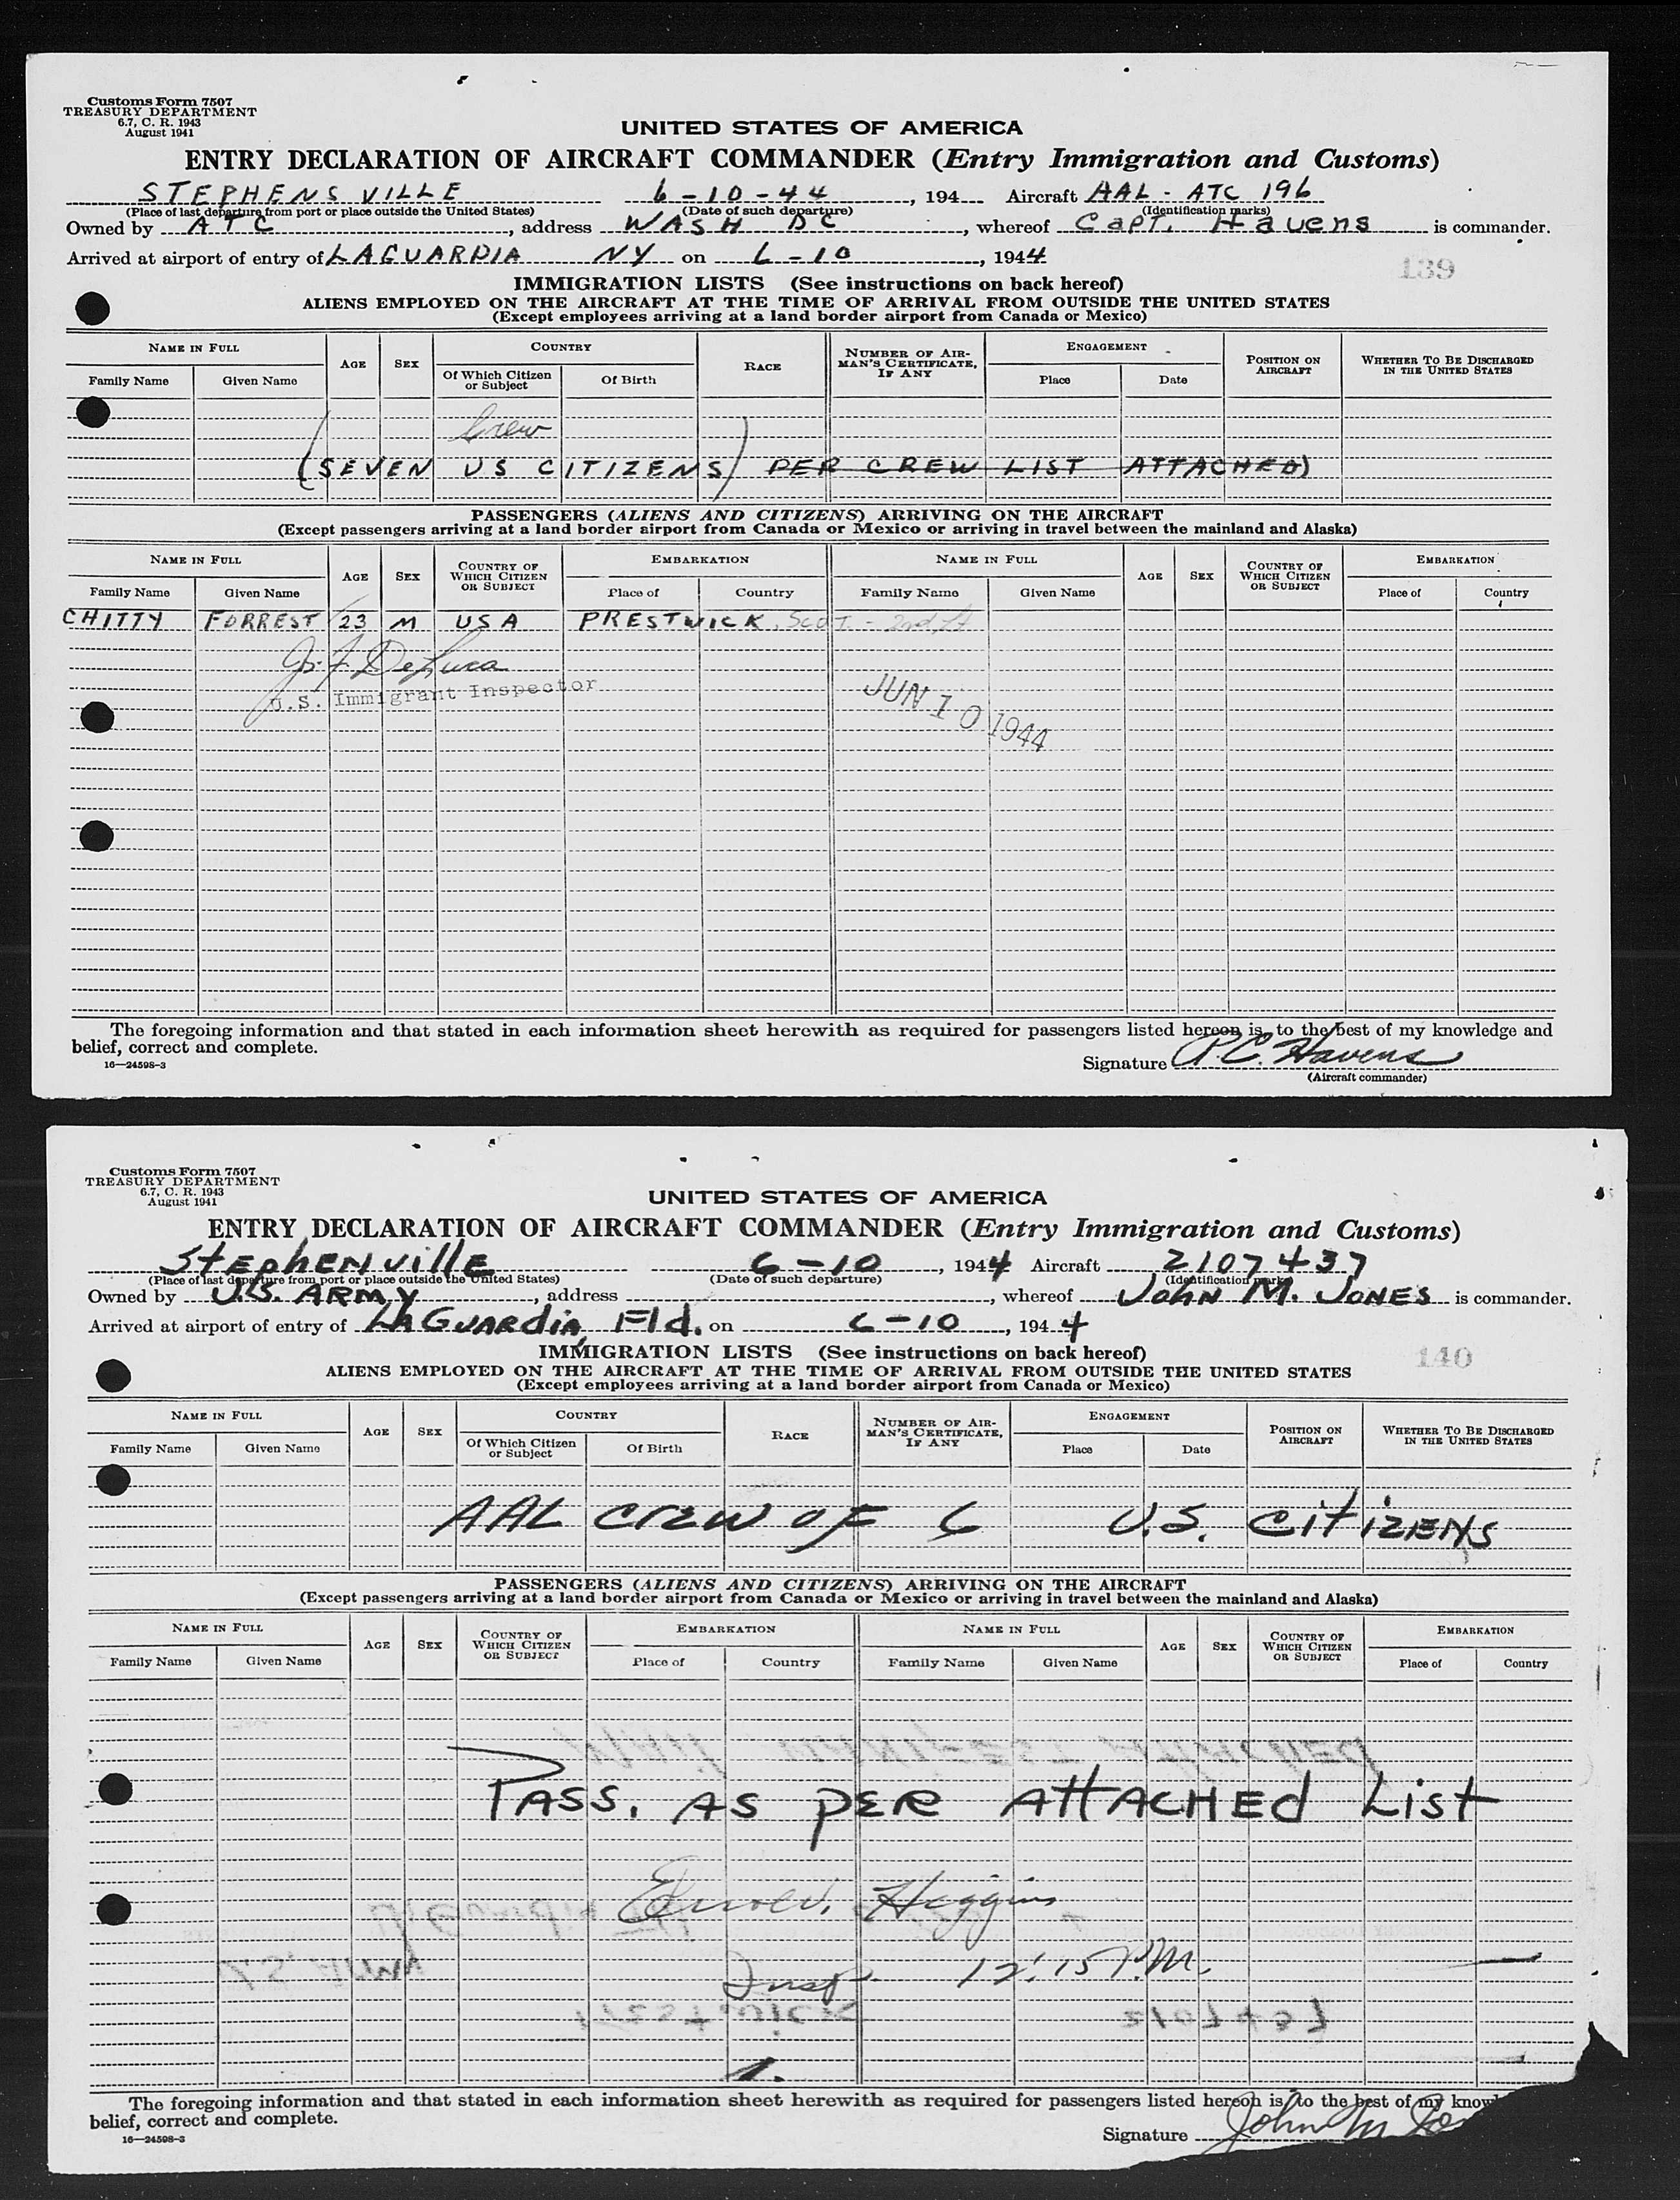 Customs Form 7507
TREASURY DEPARTMENT
6.7, C. R. 1943
August 1941
UNITED STATES OF AMERICA
ENTRY DECLARATION OF AIRCRAFT COMMANDER (Entry Immigration and Customs)
STEPHENSVILLE 6-10-44, 194 Aircraft AAL - ATC 196
(Place of last departure from port or place outside the United States) (Date of such departure) (Identification marks)
Owned by ATC, address WASH DC, whereof Capt. Havens is commander.
Arrived at airport of entry of LAGUARDIA NY on 6-10, 1944
139
IMMIGRATION LISTS (See instructions on back hereof)
ALIENS EMPLOYED ON THE AIRCRAFT AT THE TIME OF ARRIVAL FROM OUTSIDE THE UNITED STATES
(Except employees arriving at a land border airport from Canada or Mexico)
NAME IN FULL AGE SEX COUNTRY RACE NUMBER OF AIRMAN'S CERTIFICATE, IF ANY ENGAGEMENT POSITION ON AIRCRAFT WHETHER TO BE DISCHARGED IN THE UNITED STATES
Family Name Given Name Of Which Citizen or Subject Of Birth Place Date
Crew
(SEVEN US CITIZENS) PER CREW LIST ATTACHED)
PASSENGERS (ALIENS AND CITIZENS) ARRIVING ON THE AIRCRAFT
(Except passengers arriving at a land border airport from Canada or Mexico or arriving in travel between the mainland and Alaska)
NAME IN FULL AGE SEX COUNTRY OF WHICH CITIZEN OR SUBJECT EMBARKATION NAME IN FULL AGE SEX COUNTRY OF WHICH CITIZEN OR SUBJECT EMBARKATION
Family Name Given Name Place of Country Family Name Given Name Place of Country
CHITTY FORREST 23 M USA PRESTWICK, SCOT. - 2nd Lt
J. F. DeLuca
U.S. Immigrant Inspector
JUN 10 1944
The foregoing information and that stated in each information sheet herewith as required for passengers listed hereon is, to the best of my knowledge and
belief, correct and complete.
Signature P.C. Havens
16—24598-3
(Aircraft commander)
Customs Form 7507
TREASURY DEPARTMENT
6.7, C. R. 1943
August 1941
UNITED STATES OF AMERICA
ENTRY DECLARATION OF AIRCRAFT COMMANDER (Entry Immigration and Customs)
StEphENvillE 6-10, 1944 Aircraft 2107437
(Place of last departure from port or place outside the United States) (Date of such departure) (Identification marks)
Owned by U.S. ARMY, address , whereof John M. JONES is commander.
Arrived at airport of entry of LAGUARdiA Fld. on 6-10, 1944
140
IMMIGRATION LISTS (See instructions on back hereof)
ALIENS EMPLOYED ON THE AIRCRAFT AT THE TIME OF ARRIVAL FROM OUTSIDE THE UNITED STATES
(Except employees arriving at a land border airport from Canada or Mexico)
NAME IN FULL AGE SEX COUNTRY RACE NUMBER OF AIRMAN'S CERTIFICATE, IF ANY ENGAGEMENT POSITION ON AIRCRAFT WHETHER TO BE DISCHARGED IN THE UNITED STATES
Family Name Given Name Of Which Citizen or Subject Of Birth Place Date
AAL CREW OF 6 U.S. CitizENS
PASSENGERS (ALIENS AND CITIZENS) ARRIVING ON THE AIRCRAFT
(Except passengers arriving at a land border airport from Canada or Mexico or arriving in travel between the mainland and Alaska)
NAME IN FULL AGE SEX COUNTRY OF WHICH CITIZEN OR SUBJECT EMBARKATION NAME IN FULL AGE SEX COUNTRY OF WHICH CITIZEN OR SUBJECT EMBARKATION
Family Name Given Name Place of Country Family Name Given Name Place of Country
PASS. AS pER AttACHEd List
Heggins
Insp. 12:15 P.M.
The foregoing information and that stated in each information sheet herewith as required for passengers listed hereon is, to the best of my know
belief, correct and complete.
Signature John M Jo
16—24598-3